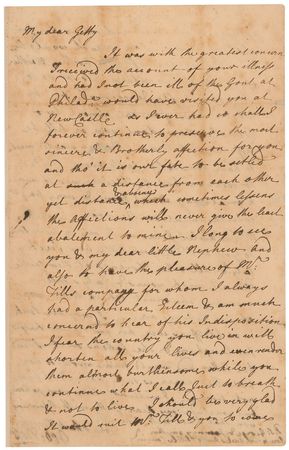 My dear Getty
It was with the greatest concern
I receiv'd the account of your illness
and had I not been ill of the Gout, at
Philad.a would have visited you at
New Castle as I ever had so shall I
forever continue to preserve the most
sincere & Brotherly affection for you
and tho' it is our fate to be settled
at such a distance from each other
yet distance, & absence which sometimes lessens
the affections will never give the least
abatement to mine. I long to see
you & my dear little Nephew and
also to have the pleasure of Mr.
Tills company for whom I always
had a particular Esteem & am much
concernd to hear of his Indisposition
I fear the country you live in will
shorten all your lives and even render
them almost burthensome while you
continue what I call Just to breath
& not to live. I should be very glad
It would suit Mr. Till & you to come